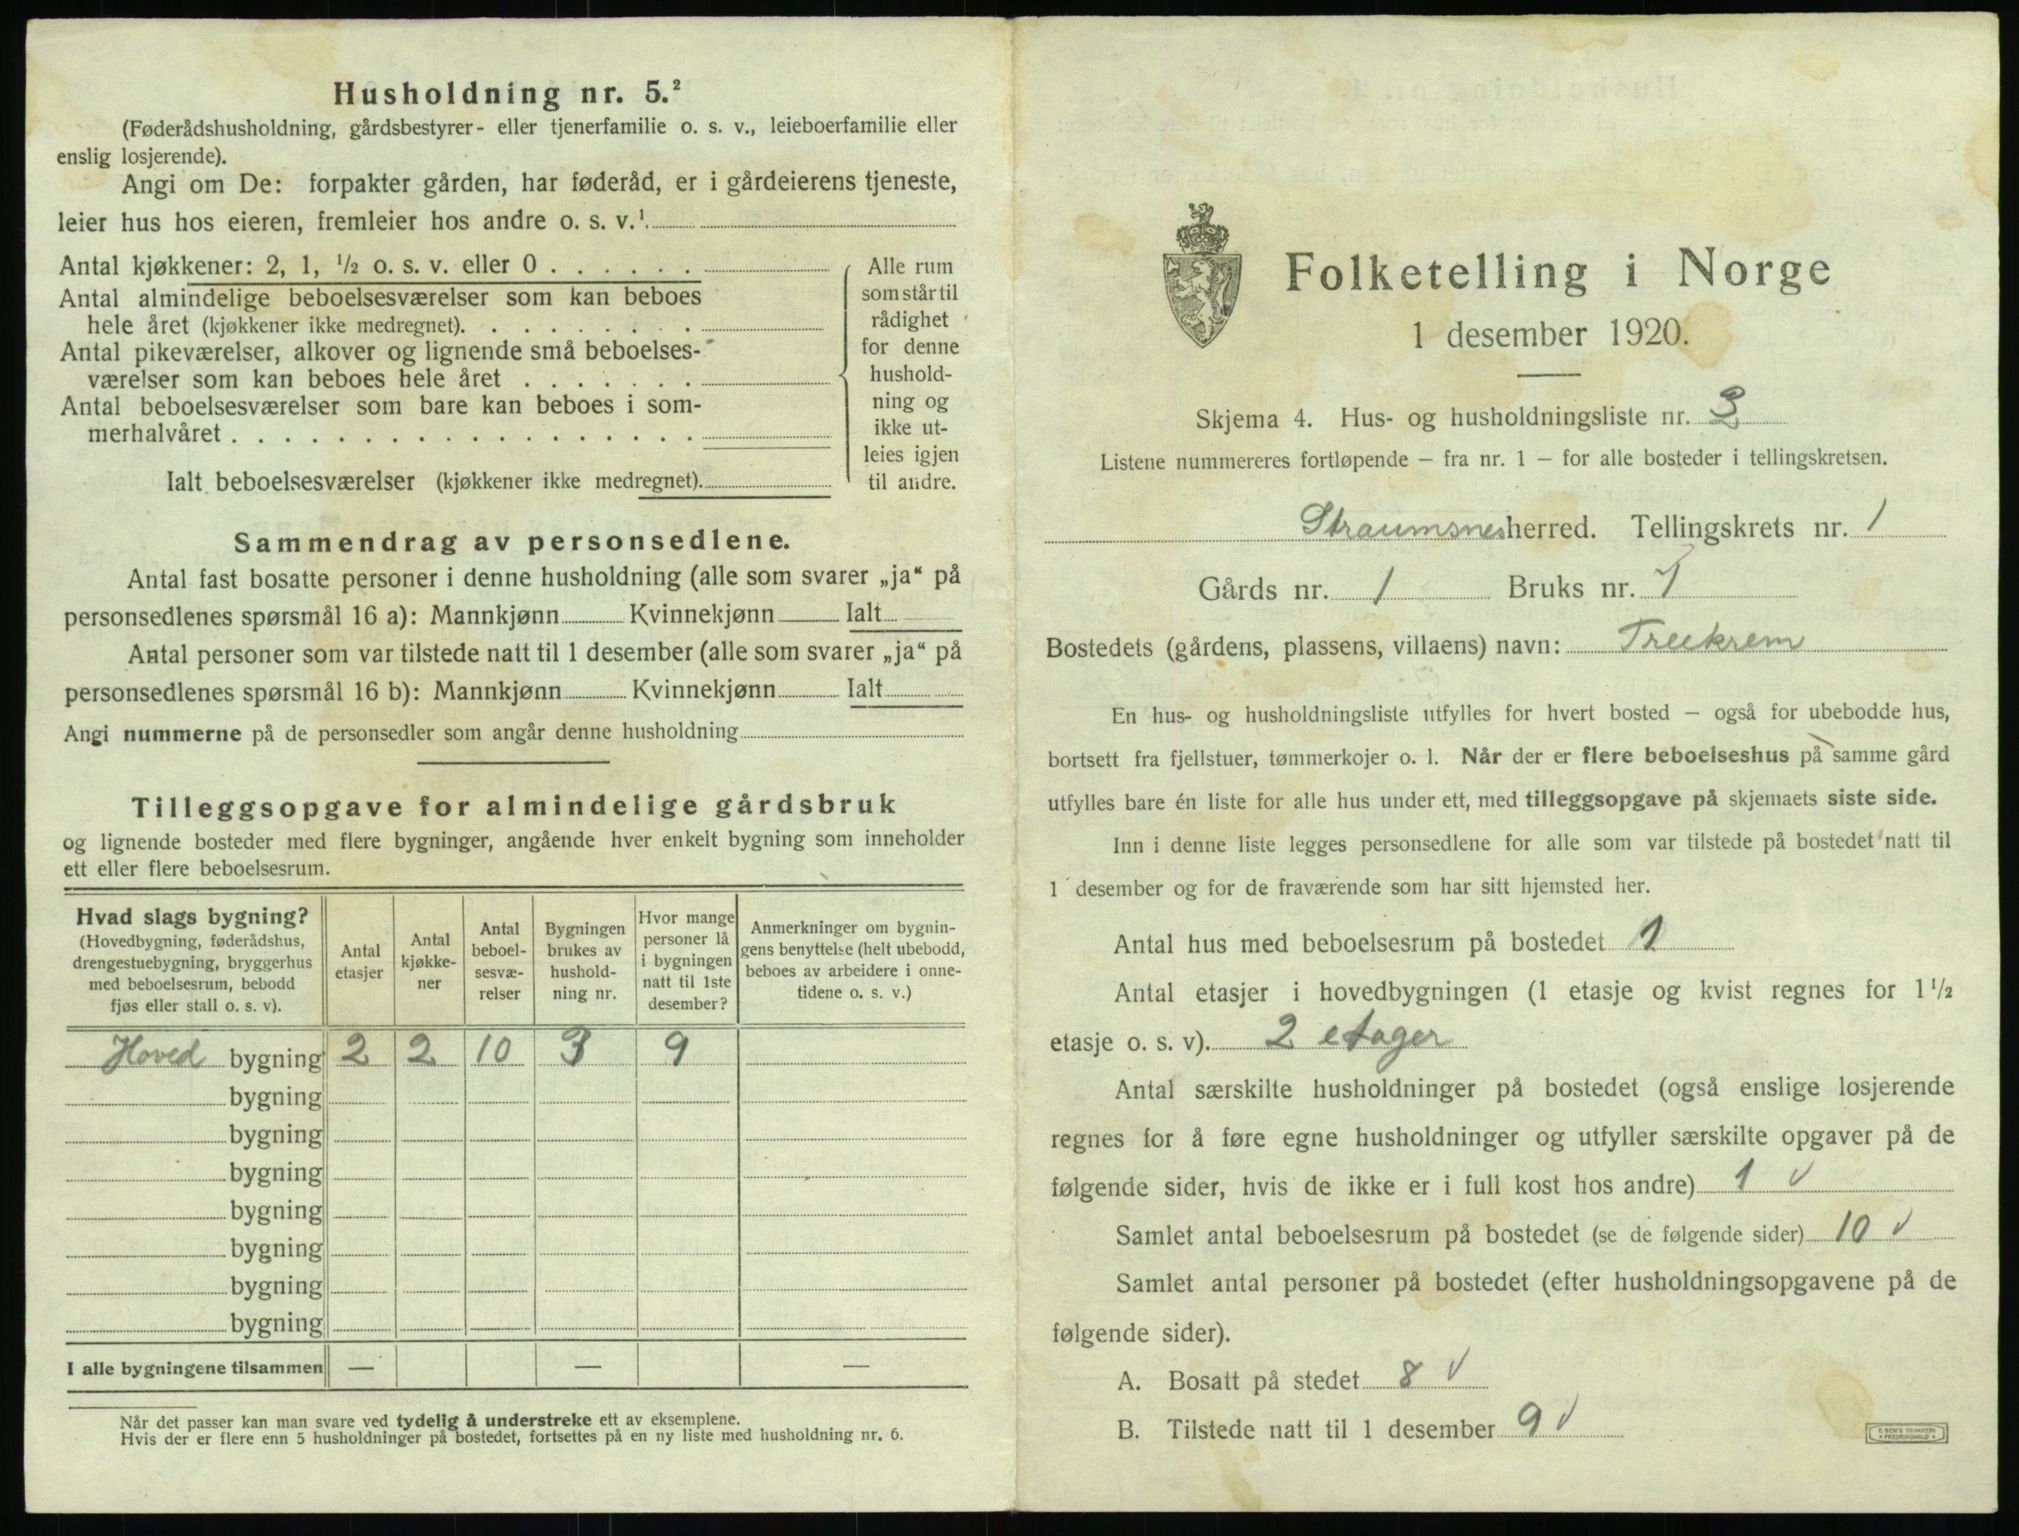 Husholdning nr. 5.²
(Føderådshusholdning, gårdsbestyrer- eller tjenerfamilie o. s. v., leieboerfamilie eller
enslig losjerende).
Angi om De: forpakter gården, har føderåd, er i gårdeierens tjeneste,
leier hus hos eieren, fremleier hos andre o. s. v.¹
Antal kjøkkener: 2, 1, ½ o. s. v. eller 0 . . . . . .
Antal almindelige beboelsesværelser som kan beboes
hele året (kjøkkener ikke medregnet). . . . . . . . .
Antal pikeværelser, alkover og lignende små beboelses-
værelser som kan beboes hele året . . . . . . .
Antal beboelsesværelser som bare kan beboes i som-
merhalvåret . . . . . . . . . . . . . . . . . .
Ialt beboelsesværelser (kjøkkener ikke medregnet).
Alle rum
som står til
rådighet
for denne
hushold-
ning og
ikke ut-
leies igjen
til andre.
Sammendrag av personsedlene.
Antal fast bosatte personer i denne husholdning (alle som svarer „ja“ på
personsedlenes spørsmål 16 a): Mannkjønn Kvinnekjønn Ialt
Antal personer som var tilstede natt til 1 desember (alle som svarer „ja“ på
personsedlenes spørsmål 16 b): Mannkjønn Kvinnekjønn Ialt
Angi nummerne på de personsedler som angår denne husholdning
Tilleggsopgave for almindelige gårdsbruk
og lignende bosteder med flere bygninger, angående hver enkelt bygning som inneholder
ett eller flere beboelsesrum.
Hvad slags bygning?
(Hovedbygning, føderådshus,
drengestuebygning, bryggerhus
med beboelsesrum, bebodd
fjøs eller stall o. s. v).
Antal
etasjer
Antal
kjøkke-
ner
Antal
beboel-
sesvæ-
relser
Bygningen
brukes av
hushold-
ning nr.
Hvor mange
personer lå
i bygningen
natt til 1ste
desember?
Anmerkninger om bygnin-
gens benyttelse (helt ubebodd,
beboes av arbeidere i onne-
tidene o. s. v.)
Hoved bygning 2 2 10 3 9
bygning
bygning
bygning
bygning
bygning
bygning
bygning
I alle bygningene tilsammen — — —
Når det passer kan man svare ved tydelig å understreke ett av eksemplene.
Hvis der er flere enn 5 husholdninger på bostedet, fortsettes på en ny liste med husholdning nr. 6.
Folketelling i Norge
1 desember 1920.
Skjema 4. Hus- og husholdningsliste nr. 3
Listene nummereres fortløpende — fra nr. 1 — for alle bosteder i tellingskretsen.
Straumsnes herred. Tellingskrets nr. 1
Gårds nr. 1 Bruks nr.
Bostedets (gårdens, plassens, villaens) navn: Treekrem
En hus- og husholdningsliste utfylles for hvert bosted — også for ubebodde hus,
bortsett fra fjellstuer, tømmerkojer o. l. Når der er flere beboelseshus på samme gård
utfylles bare én liste for alle hus under ett, med tilleggsopgave på skjemaets siste side.
Inn i denne liste legges personsedlene for alle som var tilstede på bostedet natt til
1 desember og for de fraværende som har sitt hjemsted her.
Antal hus med beboelsesrum på bostedet 1
Antal etasjer i hovedbygningen (1 etasje og kvist regnes for 1½
etasje o. s. v). 2 etager
Antal særskilte husholdninger på bostedet (også enslige losjerende
regnes for å føre egne husholdninger og utfyller særskilte opgaver på de
følgende sider, hvis de ikke er i full kost hos andre) 1 ✓
Samlet antal beboelsesrum på bostedet (se de følgende sider) 10 ✓
Samlet antal personer på bostedet (efter husholdningsopgavene på de
følgende sider).
A. Bosatt på stedet 8 ✓
B. Tilstede natt til 1 desember 9 ✓